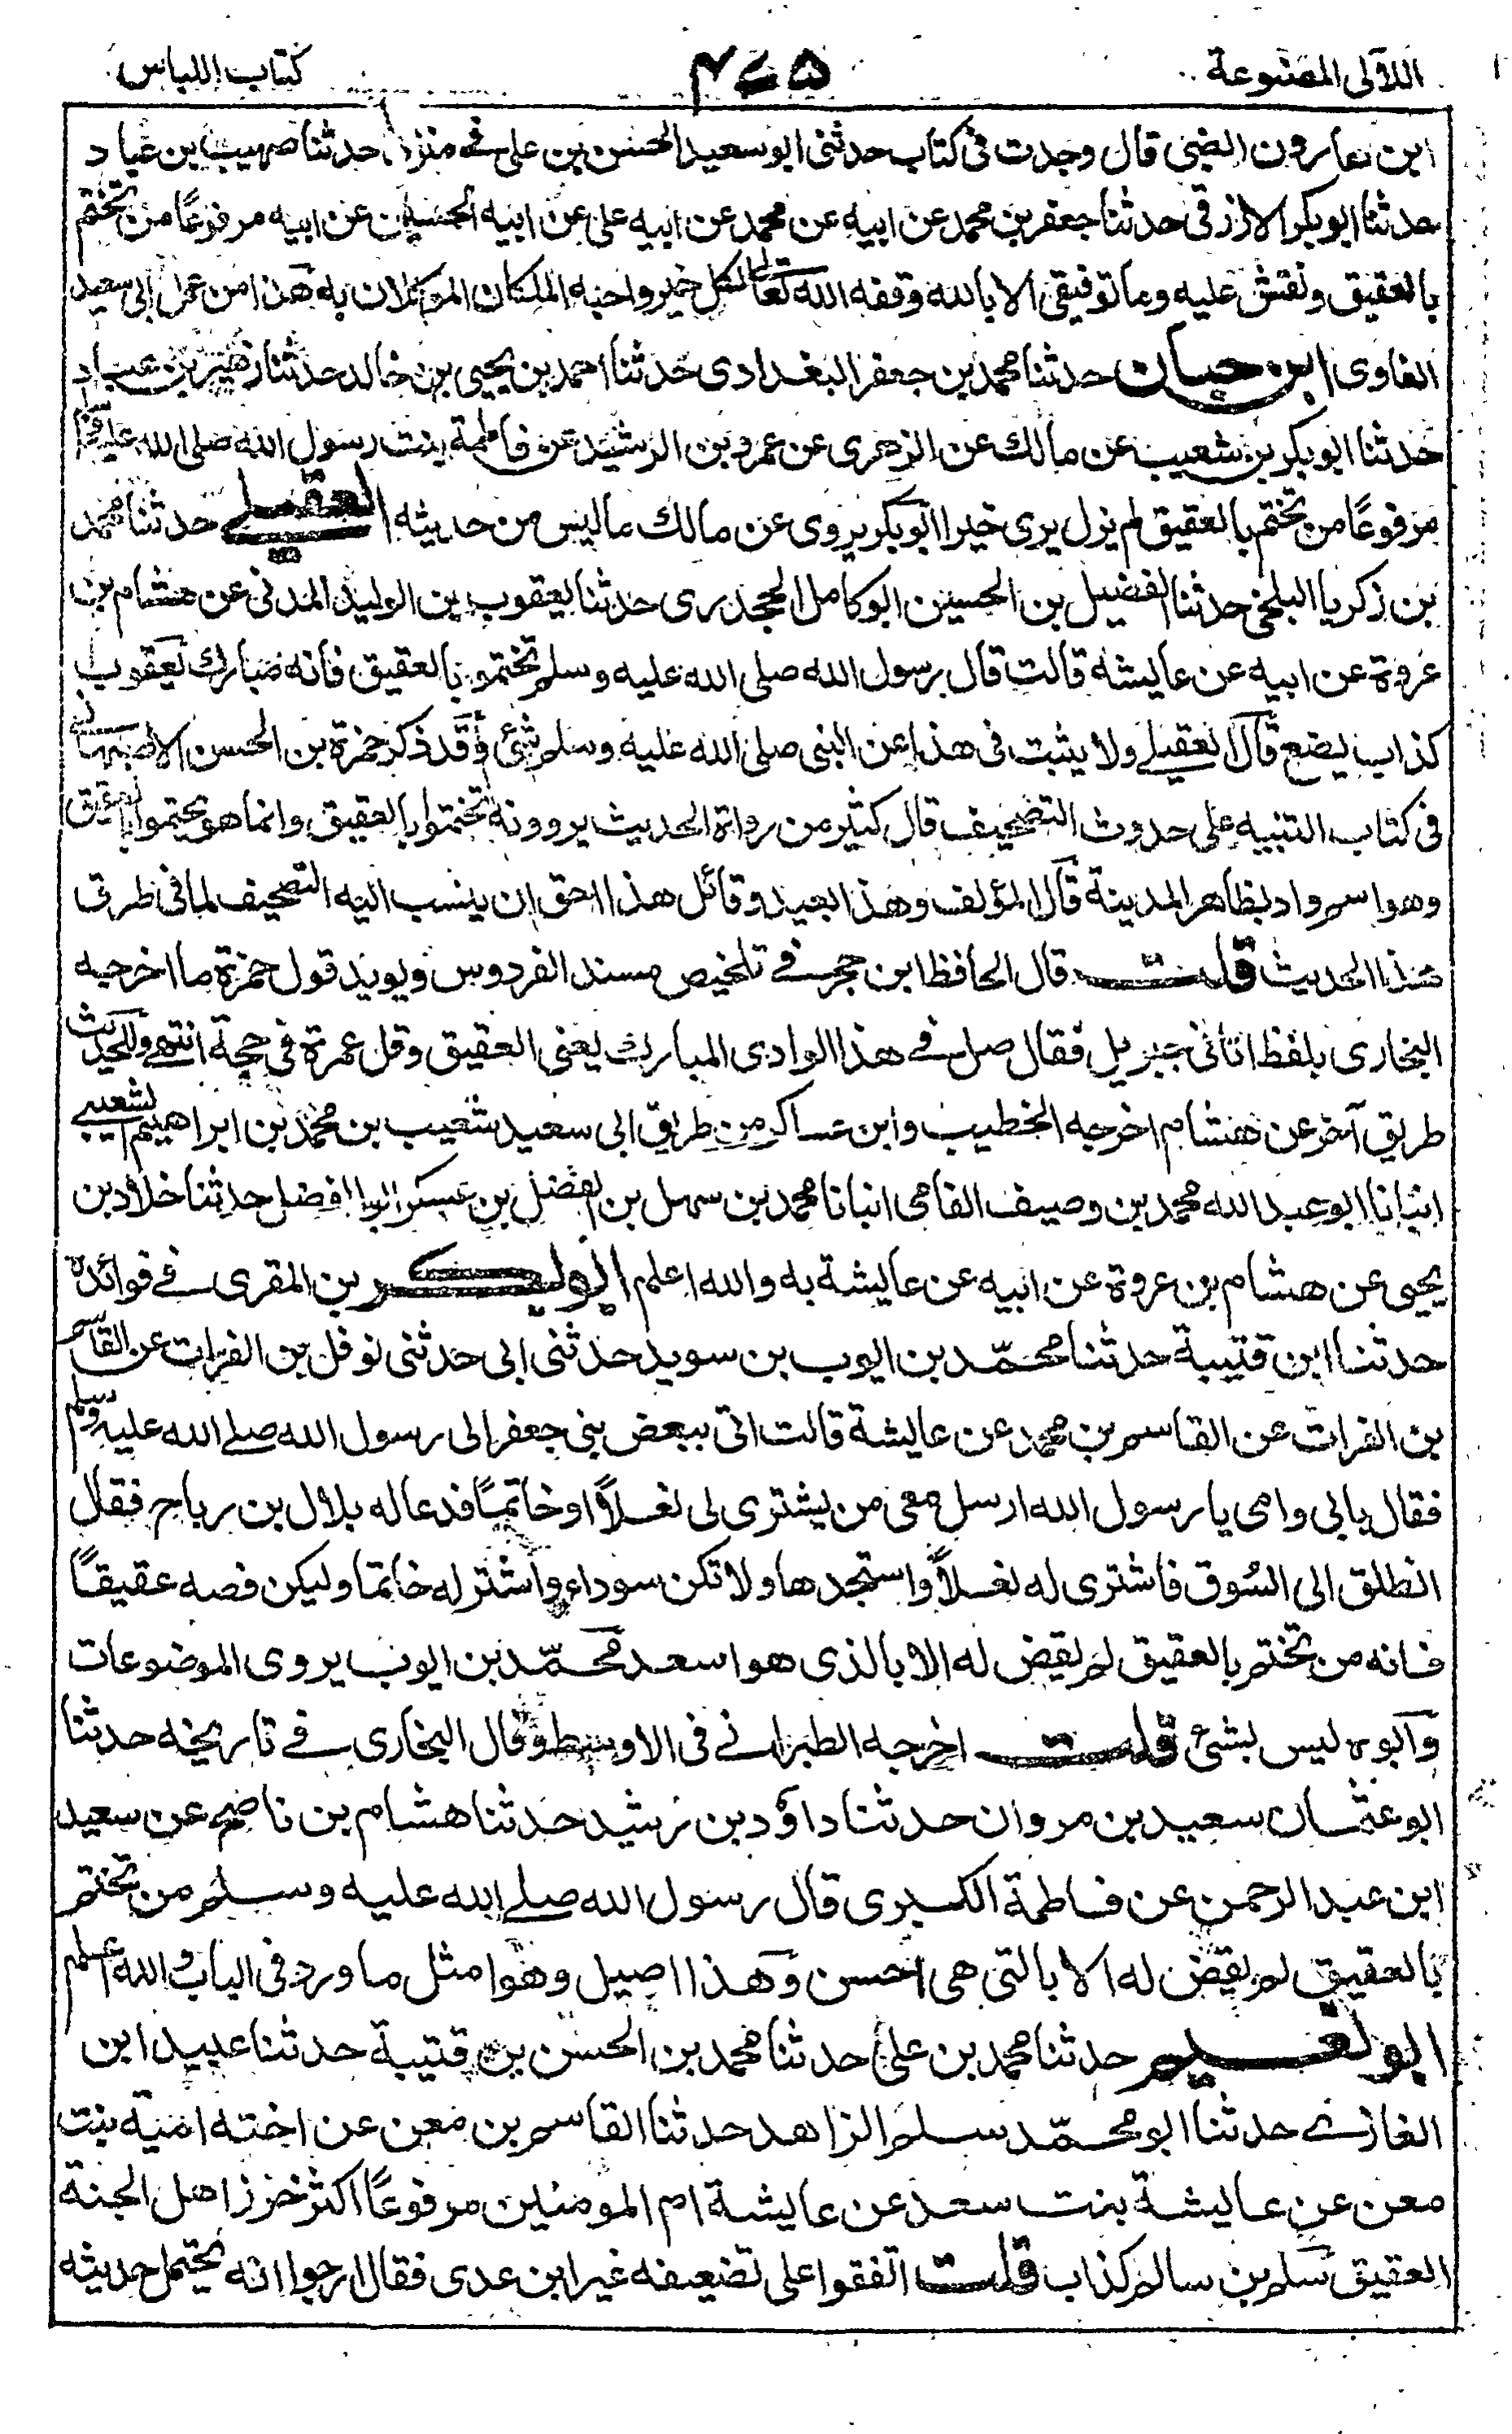 اللآلى المصنوعة
۴۷۵
كتاب اللباس
ابن هارون الضبى قال وجدت فى كتاب حدثنى ابو سعيد الحسن بن على فے منزله حدثنا صهيب بن عباد
حدثنا ابو بكر الازرقى حدثنا جعفر بن محمد عن ابيه عن محمد عن ابيه على عن ابيه الحسين عن ابيه مرفوعًا من تختم
بالعقيق ونقش عليه وما توفيقى الا بالله وفقه الله تعالى لكل خير واحبه الملكان الموكلان به هذا من عمل ابى سعيد
ابن حبان حدثنا محمد بن جعفر البغدادى حدثنا احمد بن يحيى بن خالد حدثنا زهير بن عباد
حدثنا ابو بكر بن شعيب عن مالك عن الزهرى عن عمرو بن الرشيد عن فاطمة بنت رسول الله صلى الله عليه وسلم
مرفوعًا من تختم بالعقيق لم يزل يرى خيرا ابو بكر يروى عن مالك ما ليس من حديثه العقيلے حدثنا محمد
بن زكريا البلخى حدثنا الفضيل بن الحسين ابو كامل الجحدرى حدثنا يعقوب بن الوليد المدنى عن هشام بن
عروة عن ابيه عن عايشة قالت قال رسول الله صلى الله عليه وسلم تختموا بالعقيق فانه مبارك يعقوب
كذاب يضع قال العقيلے ولا يثبت فى هذا عن النبى صلى الله عليه وسلم شئ وقد ذكر حمزة بن الحسن الاصبهانے
فى كتاب التنبيه على حدوث التصحيف قال كثير من رواة الحديث يروونه تختموا بالعقيق وانما هو يختموا بالعقيق
وهو اسم واد بظاهر المدينة قال المؤلف وهذا بعيد وقائل هذا احق ان ينسب اليه التصحيف لما فى طرق
هذا الحديث قلت قال الحافظ ابن حجر فے تلخيص مسند الفردوس ويويد قول حمزة ما اخرجه
البخارى بلفظ اتانى جبريل فقال صل فے هذا الوادى المبارك يعنى العقيق وقل عمرة فى حجة انتهے وللحديث
طريق آخر عن هشام اخرجه الخطيب وابن عساكر من طريق ابى سعيد شعيب بن محمد بن ابراهيم الشعيبے
انبانا ابو عبد الله محمد بن وصيف الفامى انبانا محمد بن سهل بن الفضل بن عسكر ابو الفضل حدثنا خلاد بن
يحيى عن هشام بن عروة عن ابيه عن عايشة به والله اعلم ابو بكر بن المقرى فے فوائده
حدثنا ابن قتيبة حدثنا محمّد بن ايوب بن سويد حدثنى ابى حدثنى نوفل بن الفرات عن القاسم
بن الفرات عن القاسم بن محمد عن عايشة قالت اتى ببعض بنى جعفر الى رسول الله صلے الله عليه وسلم
فقال بابى وامى يا رسول الله ارسل معى من يشترى لى نعلاً او خاتمًا فدعا له بلال بن رباح فقال
انطلق الى السُوق فاشترى له نعلاً واستجدها ولا تكن سوداء واشتر له خاتما وليكن فصه عقيقًا
فانه من تختم بالعقيق لم يقض له الا بالذى هو اسعد محمّد بن ايوب يروى الموضوعات
وابوه ليس بشئ قلت اخرجه الطبرانے فى الاوسط وقال البخارى فے تاريخه حدثنا
ابو عثمان سعيد بن مروان حدثنا داؤد بن رشيد حدثنا هشام بن ناصح عن سعيد
ابن عبد الرحمن عن فاطمة الكبرى قال رسول الله صلے الله عليه وسلم من تختم
بالعقيق لم يقض له الا بالتى هى احسن وهذا اصيل وهو امثل ما ورد فى الباب والله اعلم
ابو نعيم حدثنا محمد بن على حدثنا محمد بن الحسن بن قتيبة حدثنا عبيد ابن
الغازے حدثنا ابو محمّد سلم الزاهد حدثنا القاسم بن معن عن اخته امية بنت
معن عن عايشة بنت سعد عن عايشة ام المومنين مرفوعًا اكثر خرز اهل الجنة
العقيق سلم بن سالم كذاب قلت اتفقوا على تضعيفه غير ابن عدى فقال ارجوا انه يحتمل حديثه